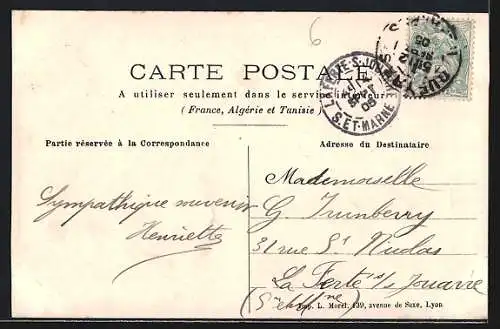 6
CARTE POSTALE
A utiliser seulement dans le service intérieur
( France, Algérie et Tunisie )
Partie réservée à la Correspondance
Adresse du Destinataire
Sympathique souvenir
Henriette
Mademoiselle
G. Trumberry
31 rue St Nicolas
La Ferté s/s Jouarre
(S. et Mne)
Imp. L. Morel, 139, avenue de Saxe, Lyon.
S. ET-MARNE